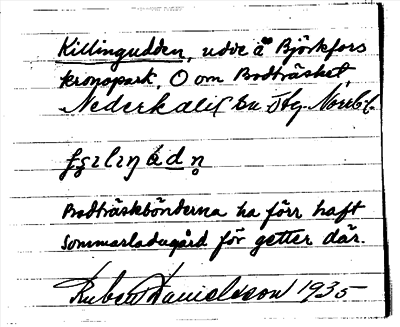 Killingudden, udde å Björkfors
kronopark, O om Bodträsket
Nederkalix sn Stg. Norrb. l.
Bodträskbönderna ha förr haft
sommarladugård för getter där.
Ruben Danielsson 1935